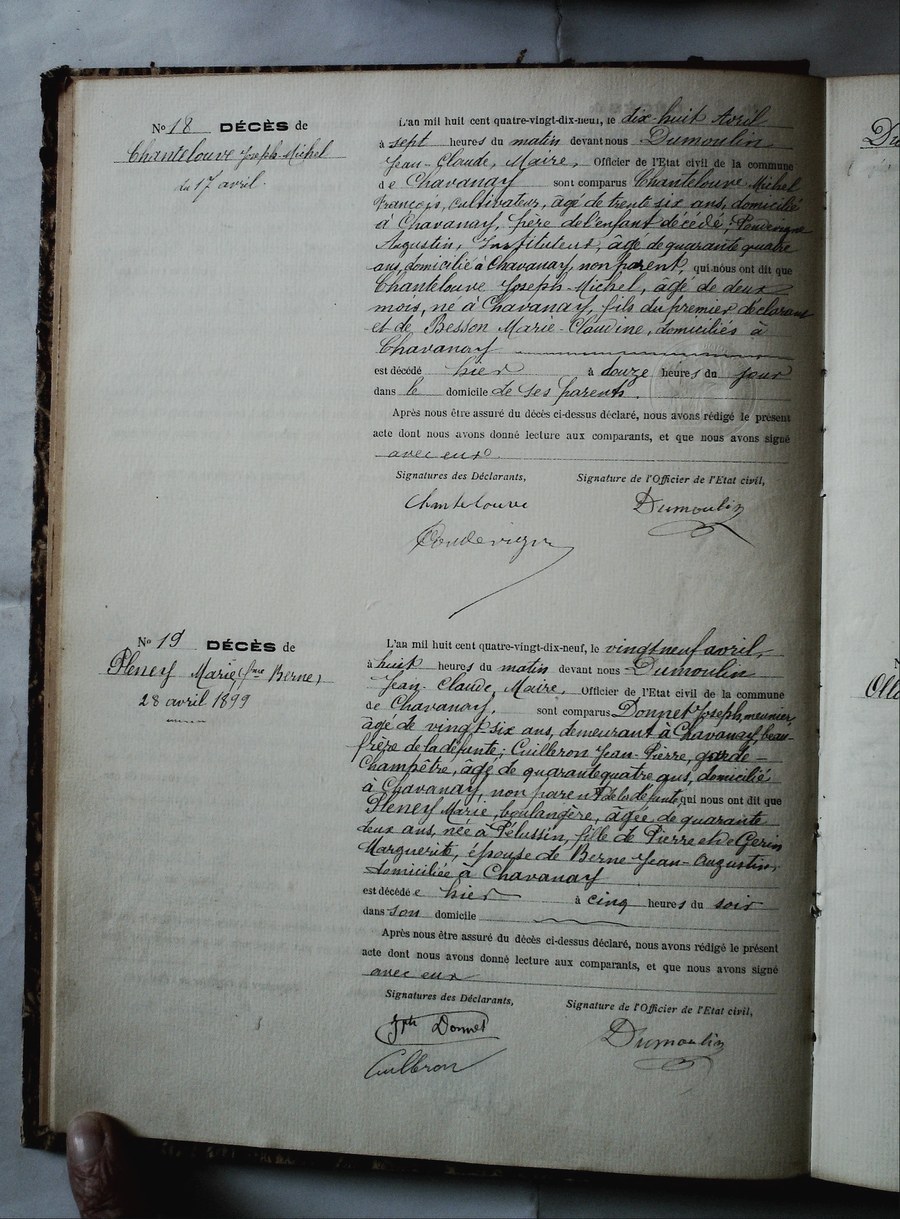 No 18 DÉCÈS de
Chantelouve Joseph-Michel
du 17 avril.
L'an mil huit cent quatre-vingt-dix-neuf, le dix-huit Avril
à sept heures du matin devant nous Dumoulin
Jean-Claude, Maire, Officier de l'Etat civil de la commune
de Chavanay sont comparus Chantelouve Michel
François, cultivateur, âgé de trente six ans, domicilié
à Chavanay, père de l'enfant décédé; Vendevigne
Augustin, Instituteur, âgé de quarante quatre
ans, domicilié à Chavanay, non parent, qui nous ont dit que
Chantelouve Joseph-Michel, âgé de deux
mois, né à Chavanay, fils du premier déclarant
et de Besson Marie-Claudine, domiciliés à
Chavanay
est décédé hier à douze heures du jour
dans le domicile de ses parents.
Après nous être assuré du décès ci-dessus déclaré, nous avons rédigé le présent
acte dont nous avons donné lecture aux comparants, et que nous avons signé
avec eux.
Signatures des Déclarants,
Signature de l'Officier de l'Etat civil,
Chantelouve
Dumoulin
No 19 DÉCÈS de
Pleney Marie fme Berne,
28 avril 1899
L'an mil huit cent quatre-vingt-dix-neuf, le vingt neuf avril,
à huit heures du matin devant nous Dumoulin
Jean-Claude, Maire, Officier de l'Etat civil de la commune
de Chavanay, sont comparus Donnet Joseph, meunier,
âgé de vingt six ans, demeurant à Chavanay, beau-
frère de la défunte; Cuilleron Jean-Pierre, garde-
Champêtre, âgé de quarante quatre ans, domicilié
à Chavanay, non parent de la défunte, qui nous ont dit que
Pleney Marie, boulangère, âgée de quarante
deux ans, née à Pélussin, fille de Pierre et de Gerin
Marguerite, épouse de Berne Jean-Augustin,
domiciliée à Chavanay
est décédé e hier à cinq heures du soir
dans son domicile
Après nous être assuré du décès ci-dessus déclaré, nous avons rédigé le présent
acte dont nous avons donné lecture aux comparants, et que nous avons signé
avec eux
Signatures des Déclarants,
Signature de l'Officier de l'Etat civil,
Jph Donnet
Dumoulin
Cuilleron